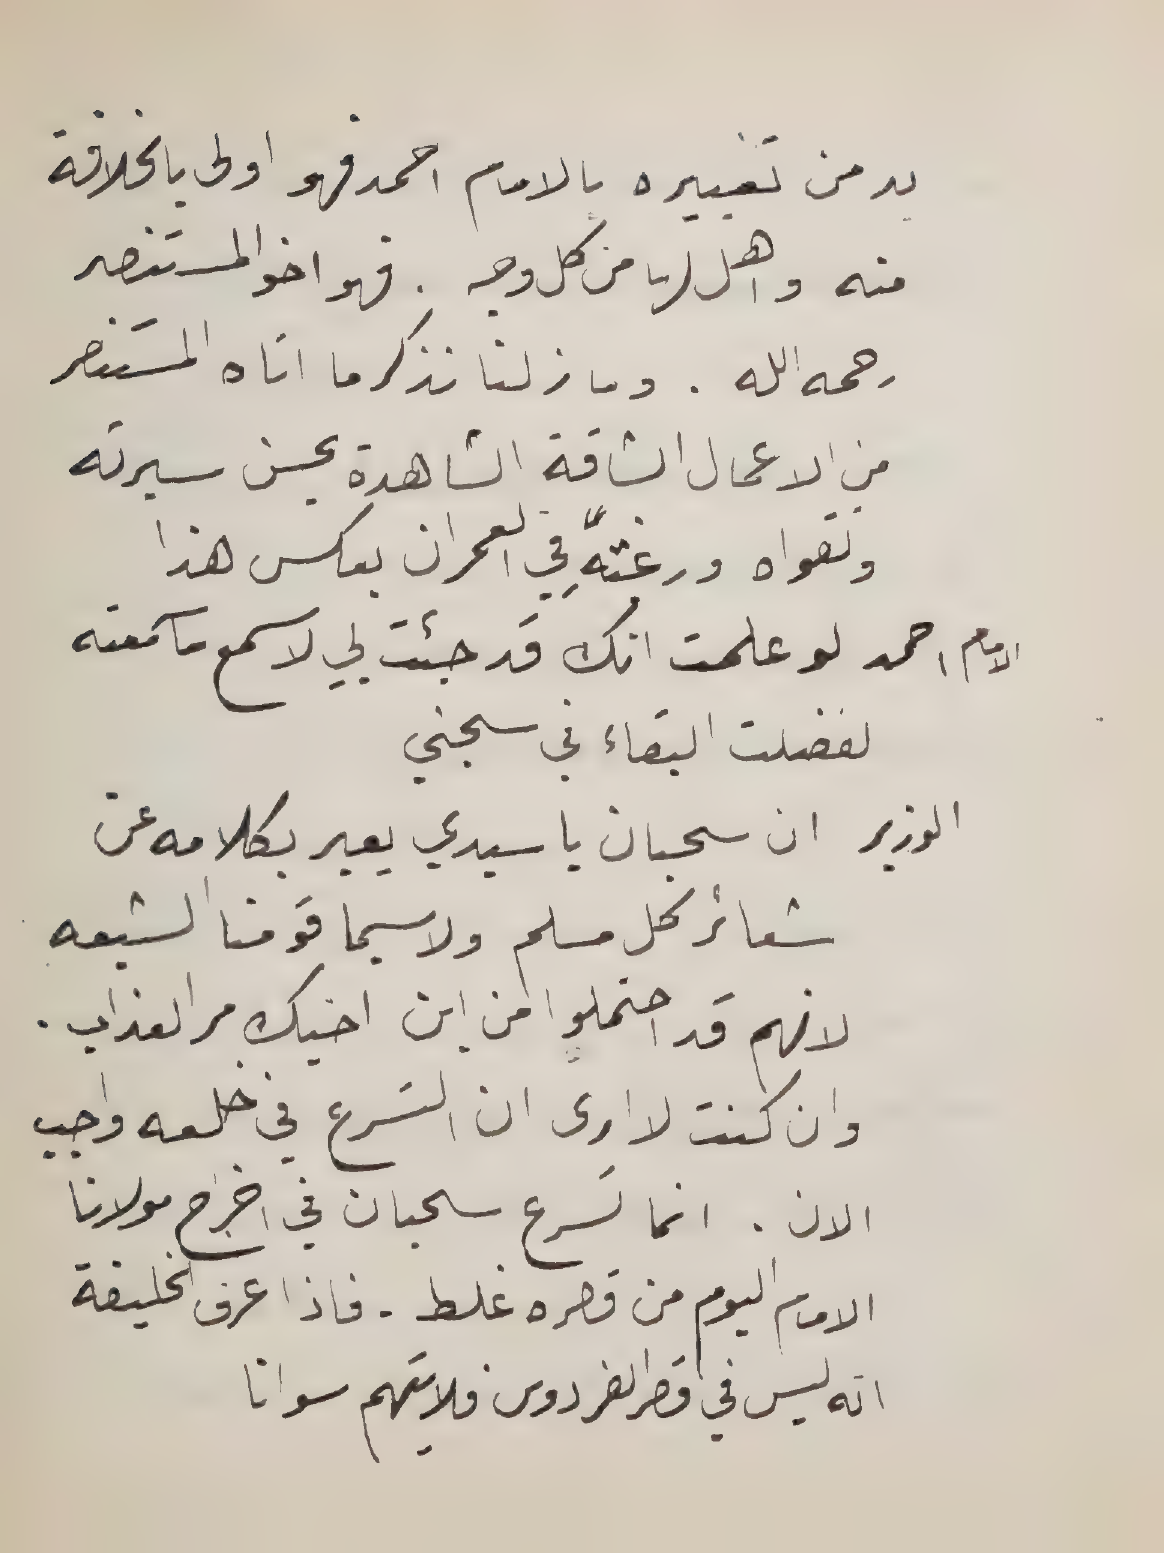 بد من تغييره بالامام احمد فهو اولى بالخلافة
منه واهل لها من كل وجه . فهو اخو المستنصر
رحمه الله . وما زلنا نذكر ما اتاه المستنصر
من الاعمال الشاقة الشاهدة بحسن سيرته
وتقواه ورغبته في العمران بعكس هذا
الامام احمد لو علمت انك قد جئت لي لاسمع ما سمعته
لفضلت البقاء في سجني
الوزير ان سحبان يا سيدي يعبر بكلامه عن
شعائر كل مسلم ولا سيما قومنا الشيعه
لانهم قد احتملوا من ابن اخيك مر العذاب .
وان كنت لا ارى ان التسرع في خلعه واجب
الان . انما تسرع سحبان في اخراج مولانا
الامام اليوم من قصره غلط . فاذا عرف الخليفة
انه ليس في قصر الفردوس فلا يتهم سوانا